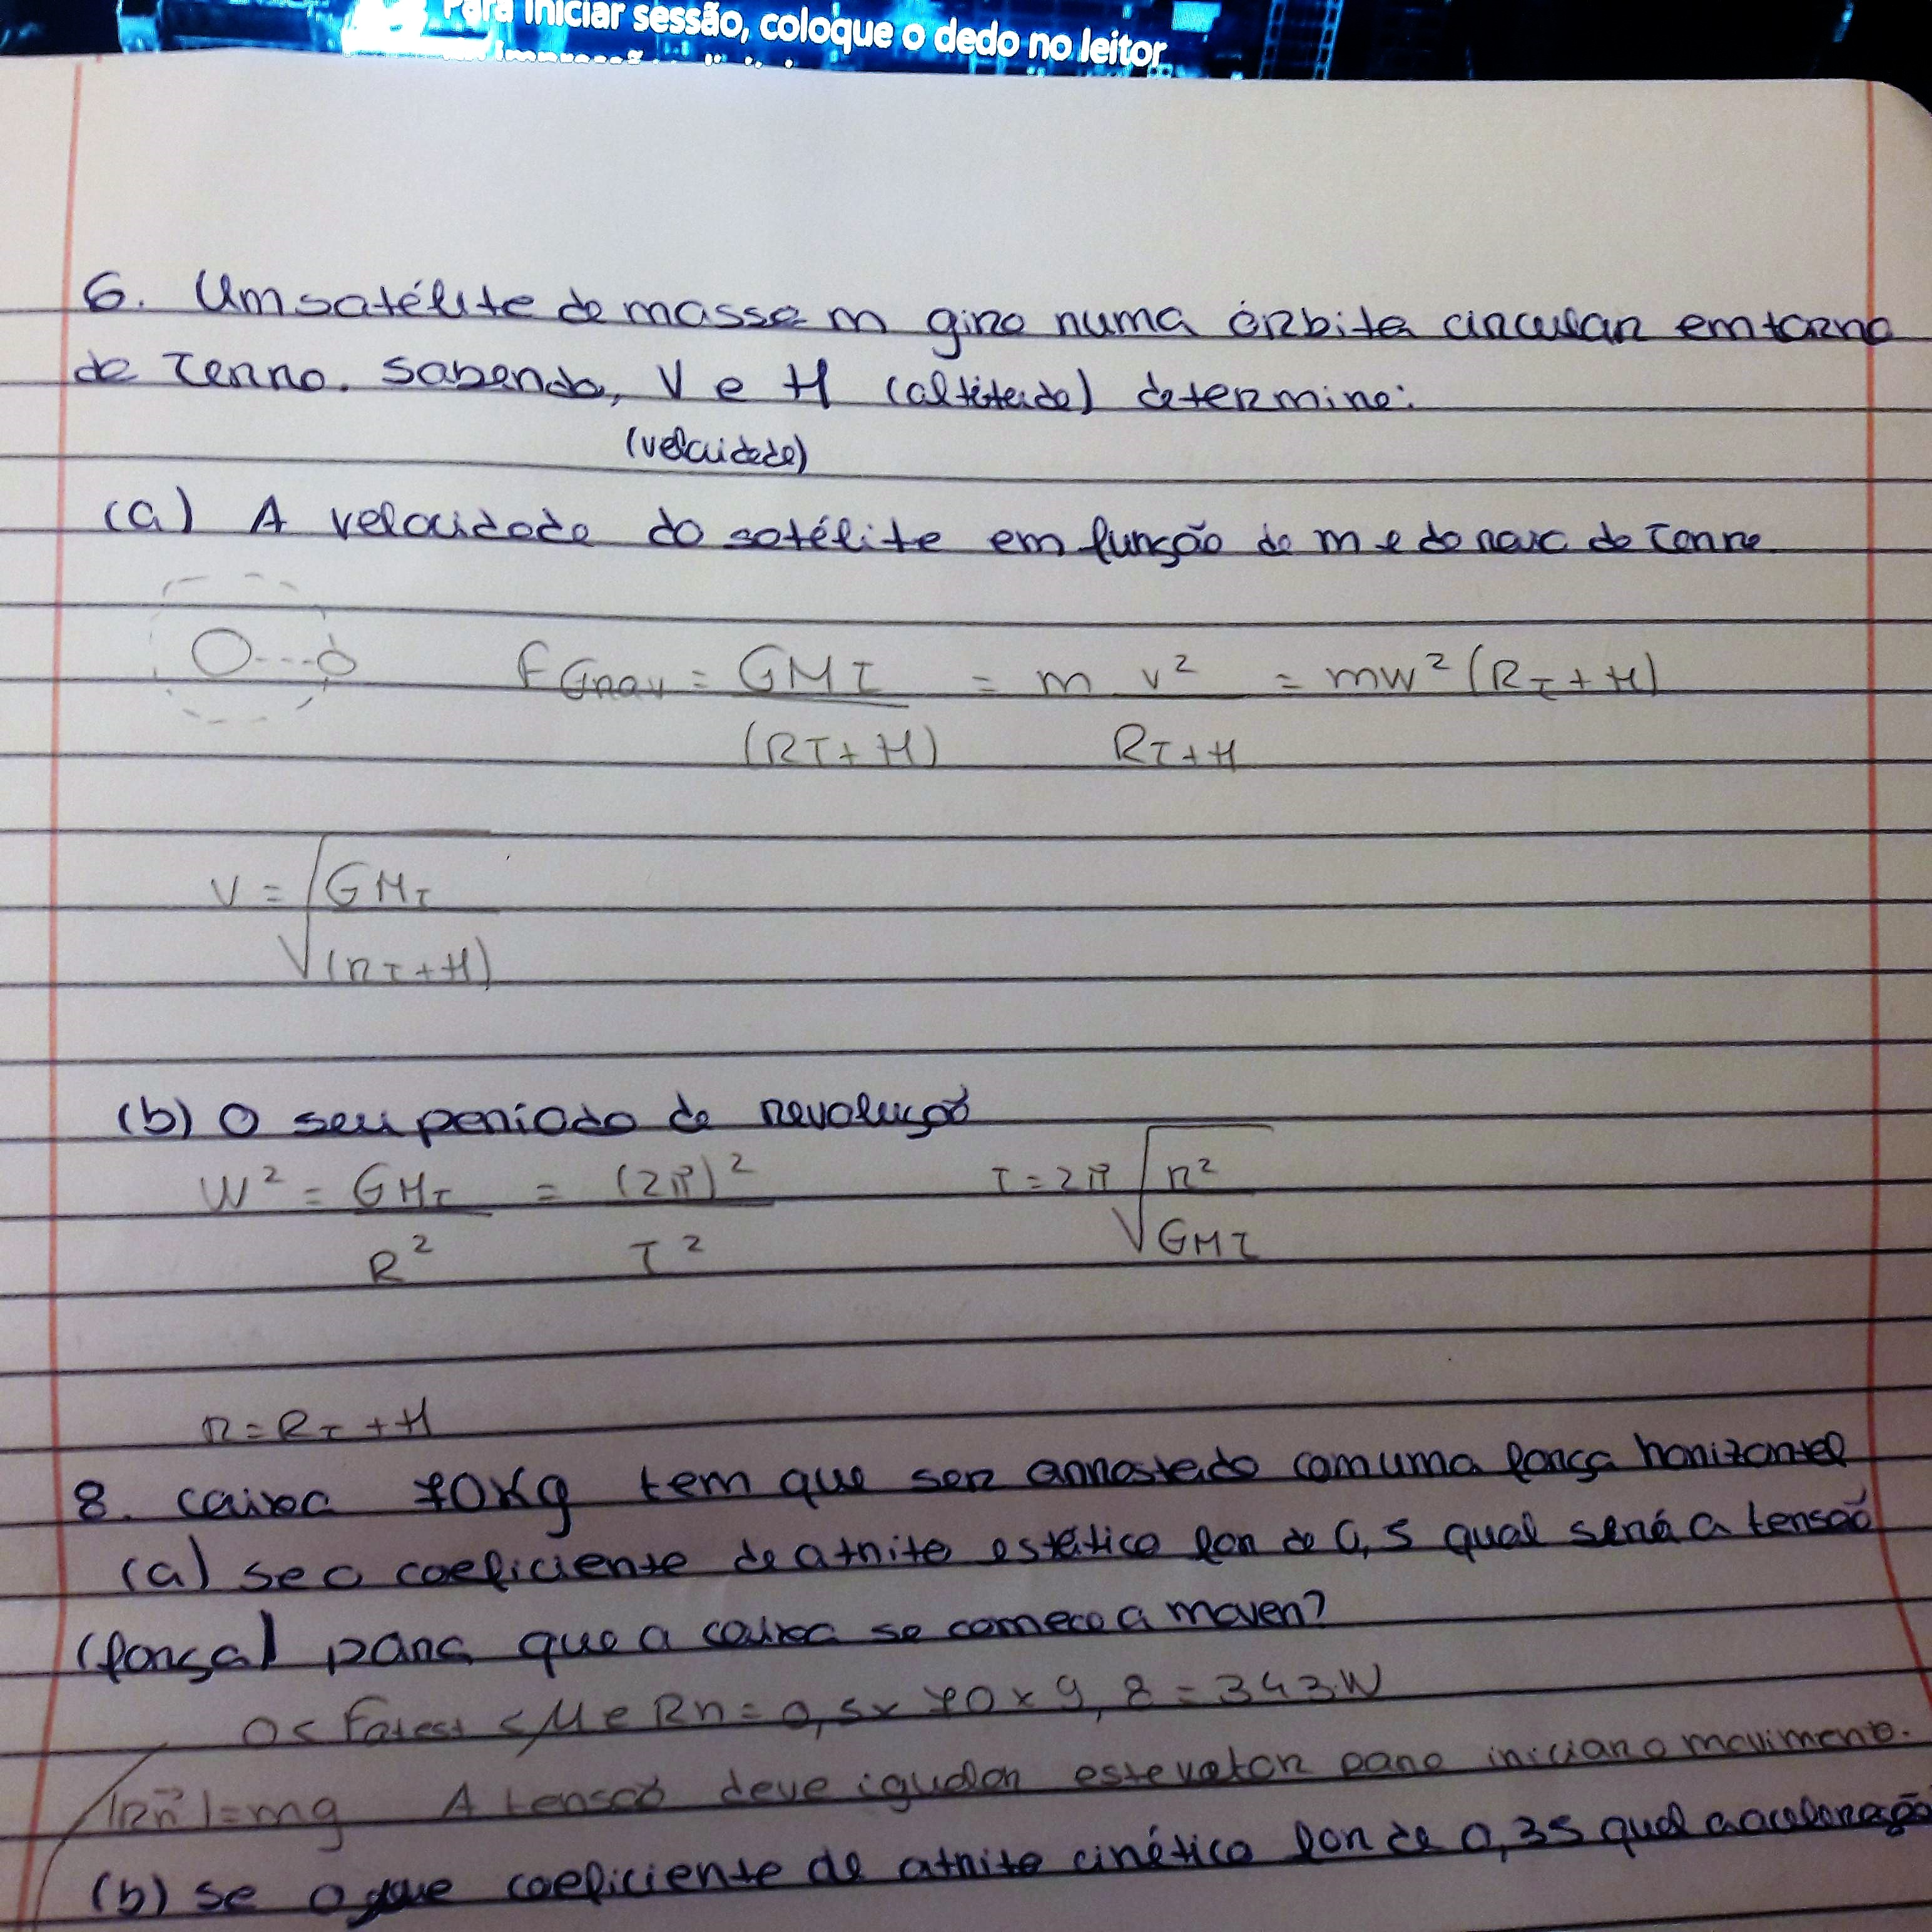 Para iniciar sessão, coloque o dedo no leitor
6. Um satélite de massa m gira numa órbita circular em torno
da Terra. Sabendo, V e H (altitude) determine:
(velocidade)
(a) A velocidade do satélite em função de m e do raio da Terra.
F Grav = GMT / (RT + H) = m v² / RT + H = mw² (RT + H)
V = √ GMT / (rT + H)
(b) O seu período de revolução
W² = GMT / R² = (2π)² / T² T = 2π √ r² / GMT
r = RT + H
8. caixa 70Kg tem que ser arrastada com uma força horizontal
(a) se o coeficiente de atrito estático for de 0,5 qual será a tensão
(força) para que a caixa se comece a mover?
0 < Fa est < μe Rn = 0,5 x 70 x 9,8 = 343 N
|Rn| = mg A tensão deve igualar este valor para iniciar o movimento.
(b) se o coeficiente de atrito cinético for de 0,35 qual a aceleração